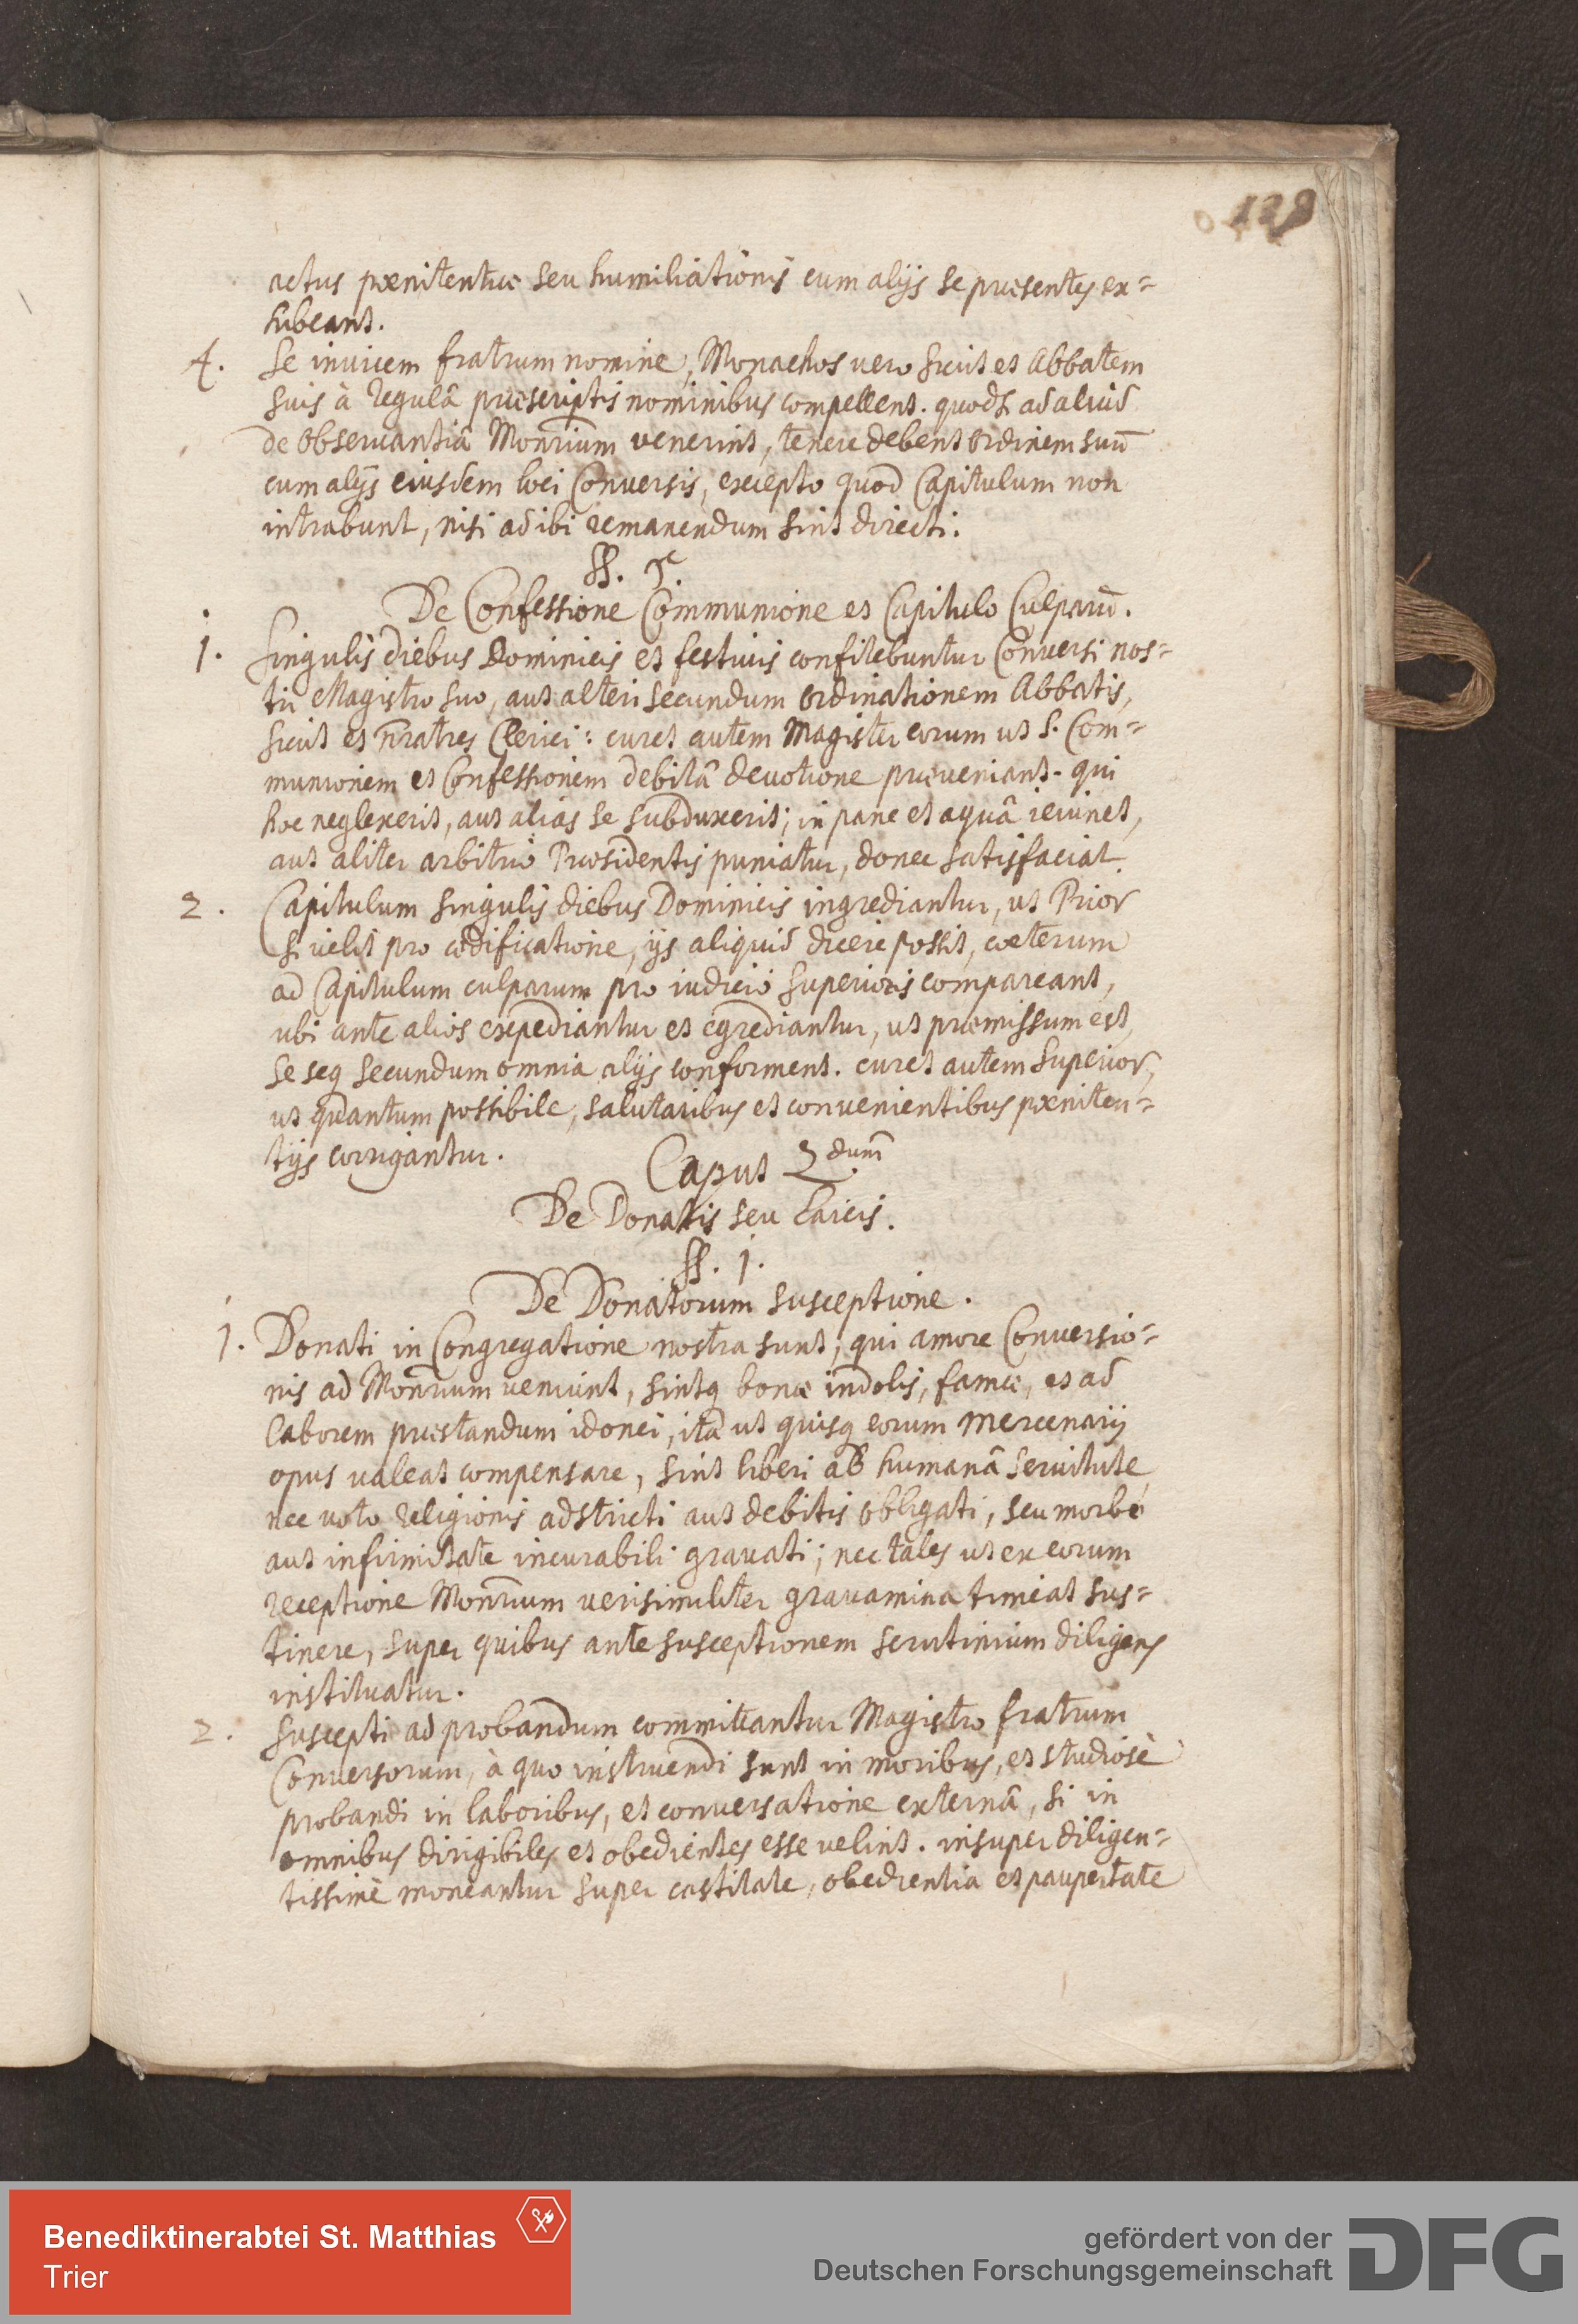 128
actus pœnitentiæ seu humiliationis cum alijs se præsentes ex=
hibeant.
4. Se invicem fratrum nomine, Monachos vero sicut et Abbatem
suis à Regulâ præscriptis nominibus compellent. quodsi ad aliud
de observantiâ Monrium venerint, tenere debent ordinem suū
cum alijs eiusdem loci Conversis, excepto quod Capitulum non
intrabunt, nisi ad ibi remanendum sint directi.
§§. 5.
De Confessione Communione et Capitulo Culparū.
1. Singulis diebus Dominicis et festivis confitebuntur Conversi nos=
tri Magistro suo, aut alteri secundum ordinationem Abbatis,
sicut et Fratres Clerici: curet autem Magister eorum ut S. Com=
munionem et Confessionem debitâ devotione præveniant. qui
hoc neglexerit, aut alias se subduxerit; in pane et aquâ ieiunet,
aut aliter arbitrio Præsidentis puniatur, donec satisfaciat.
2. Capitulum singulis diebus Dominicis ingrediantur, ut Prior
si velit pro ædificatione, ijs aliquid dicere possit, cœterum
ad Capitulum culparum pro iudicio superioris compareant,
ubi ante alios expediantur et egrediantur, ut præmissum est,
se seq secundum omnia alijs conforment. curet autem superior,
ut quantum possibile, salutaribus et convenientibus pœniten=
tijs corrigantur.
Caput 2dum
De Donatis seu Laicis.
§§. 1.
De Donatorum susceptione.
1. Donati in Congregatione nostra sunt, qui amore Conversio=
nis ad Monrium veniunt, sintq bonæ indolis, famæ, et ad
laborem præstandum idonei, ita ut quisq eorum mercenarij
opus valeat compensare, sint liberi ab humanâ servitute,
nec voto religionis adstricti aut debitis obligati, seu morbo
aut infirmitate incurabili gravati; nec tales ut ex eorum
receptione Monrium verisimiliter gravamina timeat sus=
tinere, super quibus ante susceptionem scrutinium diligens
instituatur.
2. Suscepti ad probandum committantur Magistro fratrum
Conversorum, à quo instruendi sunt in moribus, et studiosè
probandi in laboribus, et conversatione externâ, si in
omnibus dirigibiles et obedientes esse velint. insuper diligen=
tissimè moneantur super castitate, obedientia et paupertate
Benediktinerabtei St. Matthias
Trier
gefördert von der
Deutschen Forschungsgemeinschaft
DFG